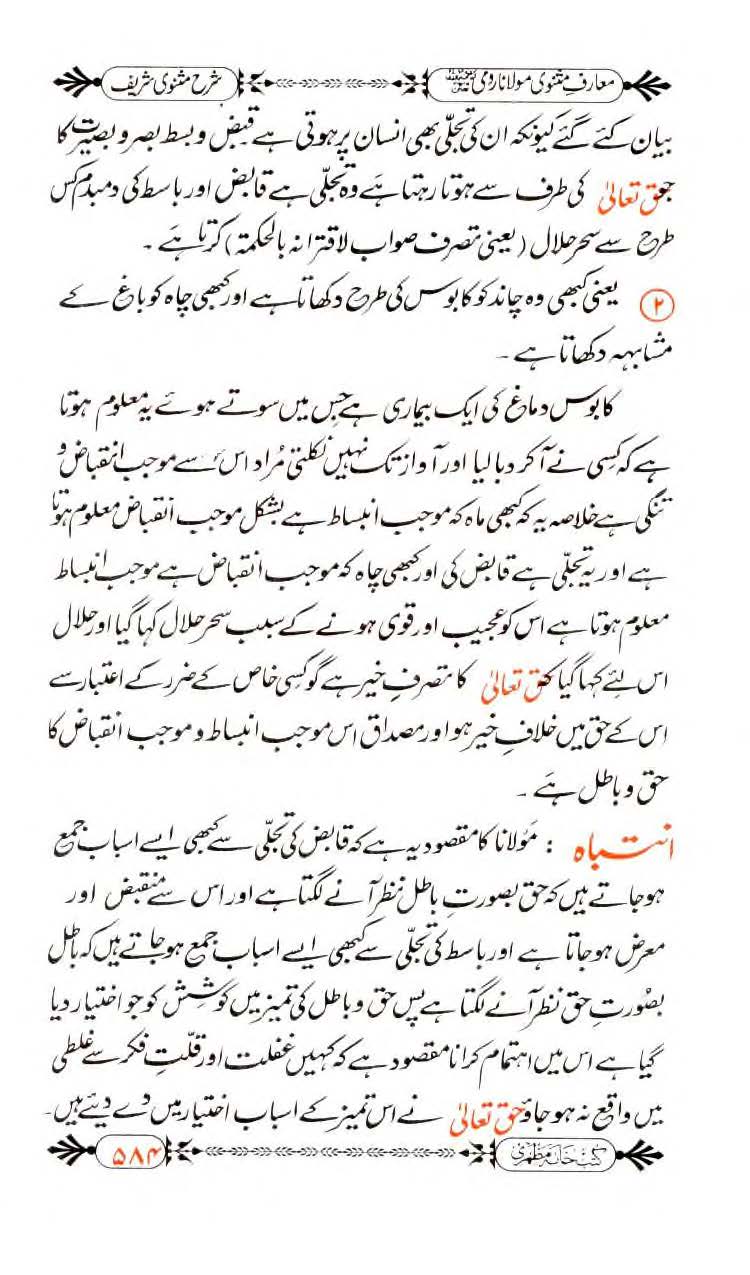 معارفِ مثنوی مولانا رومی
شرح مثنوی شریف
بیان کئے گئے کیونکہ ان کی تجلّی بھی انسان پر ہوتی ہے قبض و بسط بصر و بصیرت کا
جو حق تعالیٰ کی طرف سے ہوتا رہتا ہے وہ تجلّی ہے قابض اور باسط کی دمبدم کس
طرح سے سحر حلال (یعنی تصرف صواب لاقترانہ بالحکمۃ) کرتا ہے ۔
۲ یعنی کبھی وہ چاند کو کابوس کی طرح دکھاتا ہے اور کبھی چاہ کو باغ کے
مشابہہ دکھاتا ہے ۔
کابوس دماغ کی ایک بیماری ہے جس میں سوتے ہوئے یہ معلوم ہوتا
ہے کہ کسی نے آکر دبا لیا اور آواز تک نہیں نکلتی مُراد اس سے موجب انقباض و
تنگی ہے خلاصہ یہ کہ کبھی ماہ کہ موجب انبساط ہے بشکل موجب انقباض معلوم ہوتا
ہے اور یہ تجلّی ہے قابض کی اور کبھی چاہ کہ موجب انقباض ہے موجب انبساط
معلوم ہوتا ہے اس کو عجیب اور قوی ہونے کے سبب سحر حلال کہا گیا اور حلال
اس لئے کہا گیا کہ حق تعالیٰ کا تصرف خیر ہے گو کسی خاص کے ضرر کے اعتبار سے
اس کے حق میں خلافِ خیر ہو اور مصداق اس موجب انبساط و موجب انقباض کا
حق و باطل ہے ۔
انتباہ : مَولانا کا مقصود یہ ہے کہ قابض کی تجلّی سے کبھی ایسے اسباب جمع
ہوجاتے ہیں کہ حق بصورتِ باطل نظر آنے لگتا ہے اور اس سے منقبض اور
معرض ہوجاتا ہے اور باسط کی تجلّی سے کبھی ایسے اسباب جمع ہوجاتے ہیں کہ باطل
بصُورتِ حق نظر آنے لگتا ہے پس حق و باطل کی تمیز میں کوشش کو جو اختیار دیا
گیا ہے اس میں اہتمام کرانا مقصود ہے کہ کہیں غفلت اور قلّتِ فکر سے غلطی
میں واقع نہ ہوجاؤ حق تعالیٰ نے اس تمیز کے اسباب اختیار میں دے دیئے ہیں۔
کتب خانہ مظہری
۵۸۴